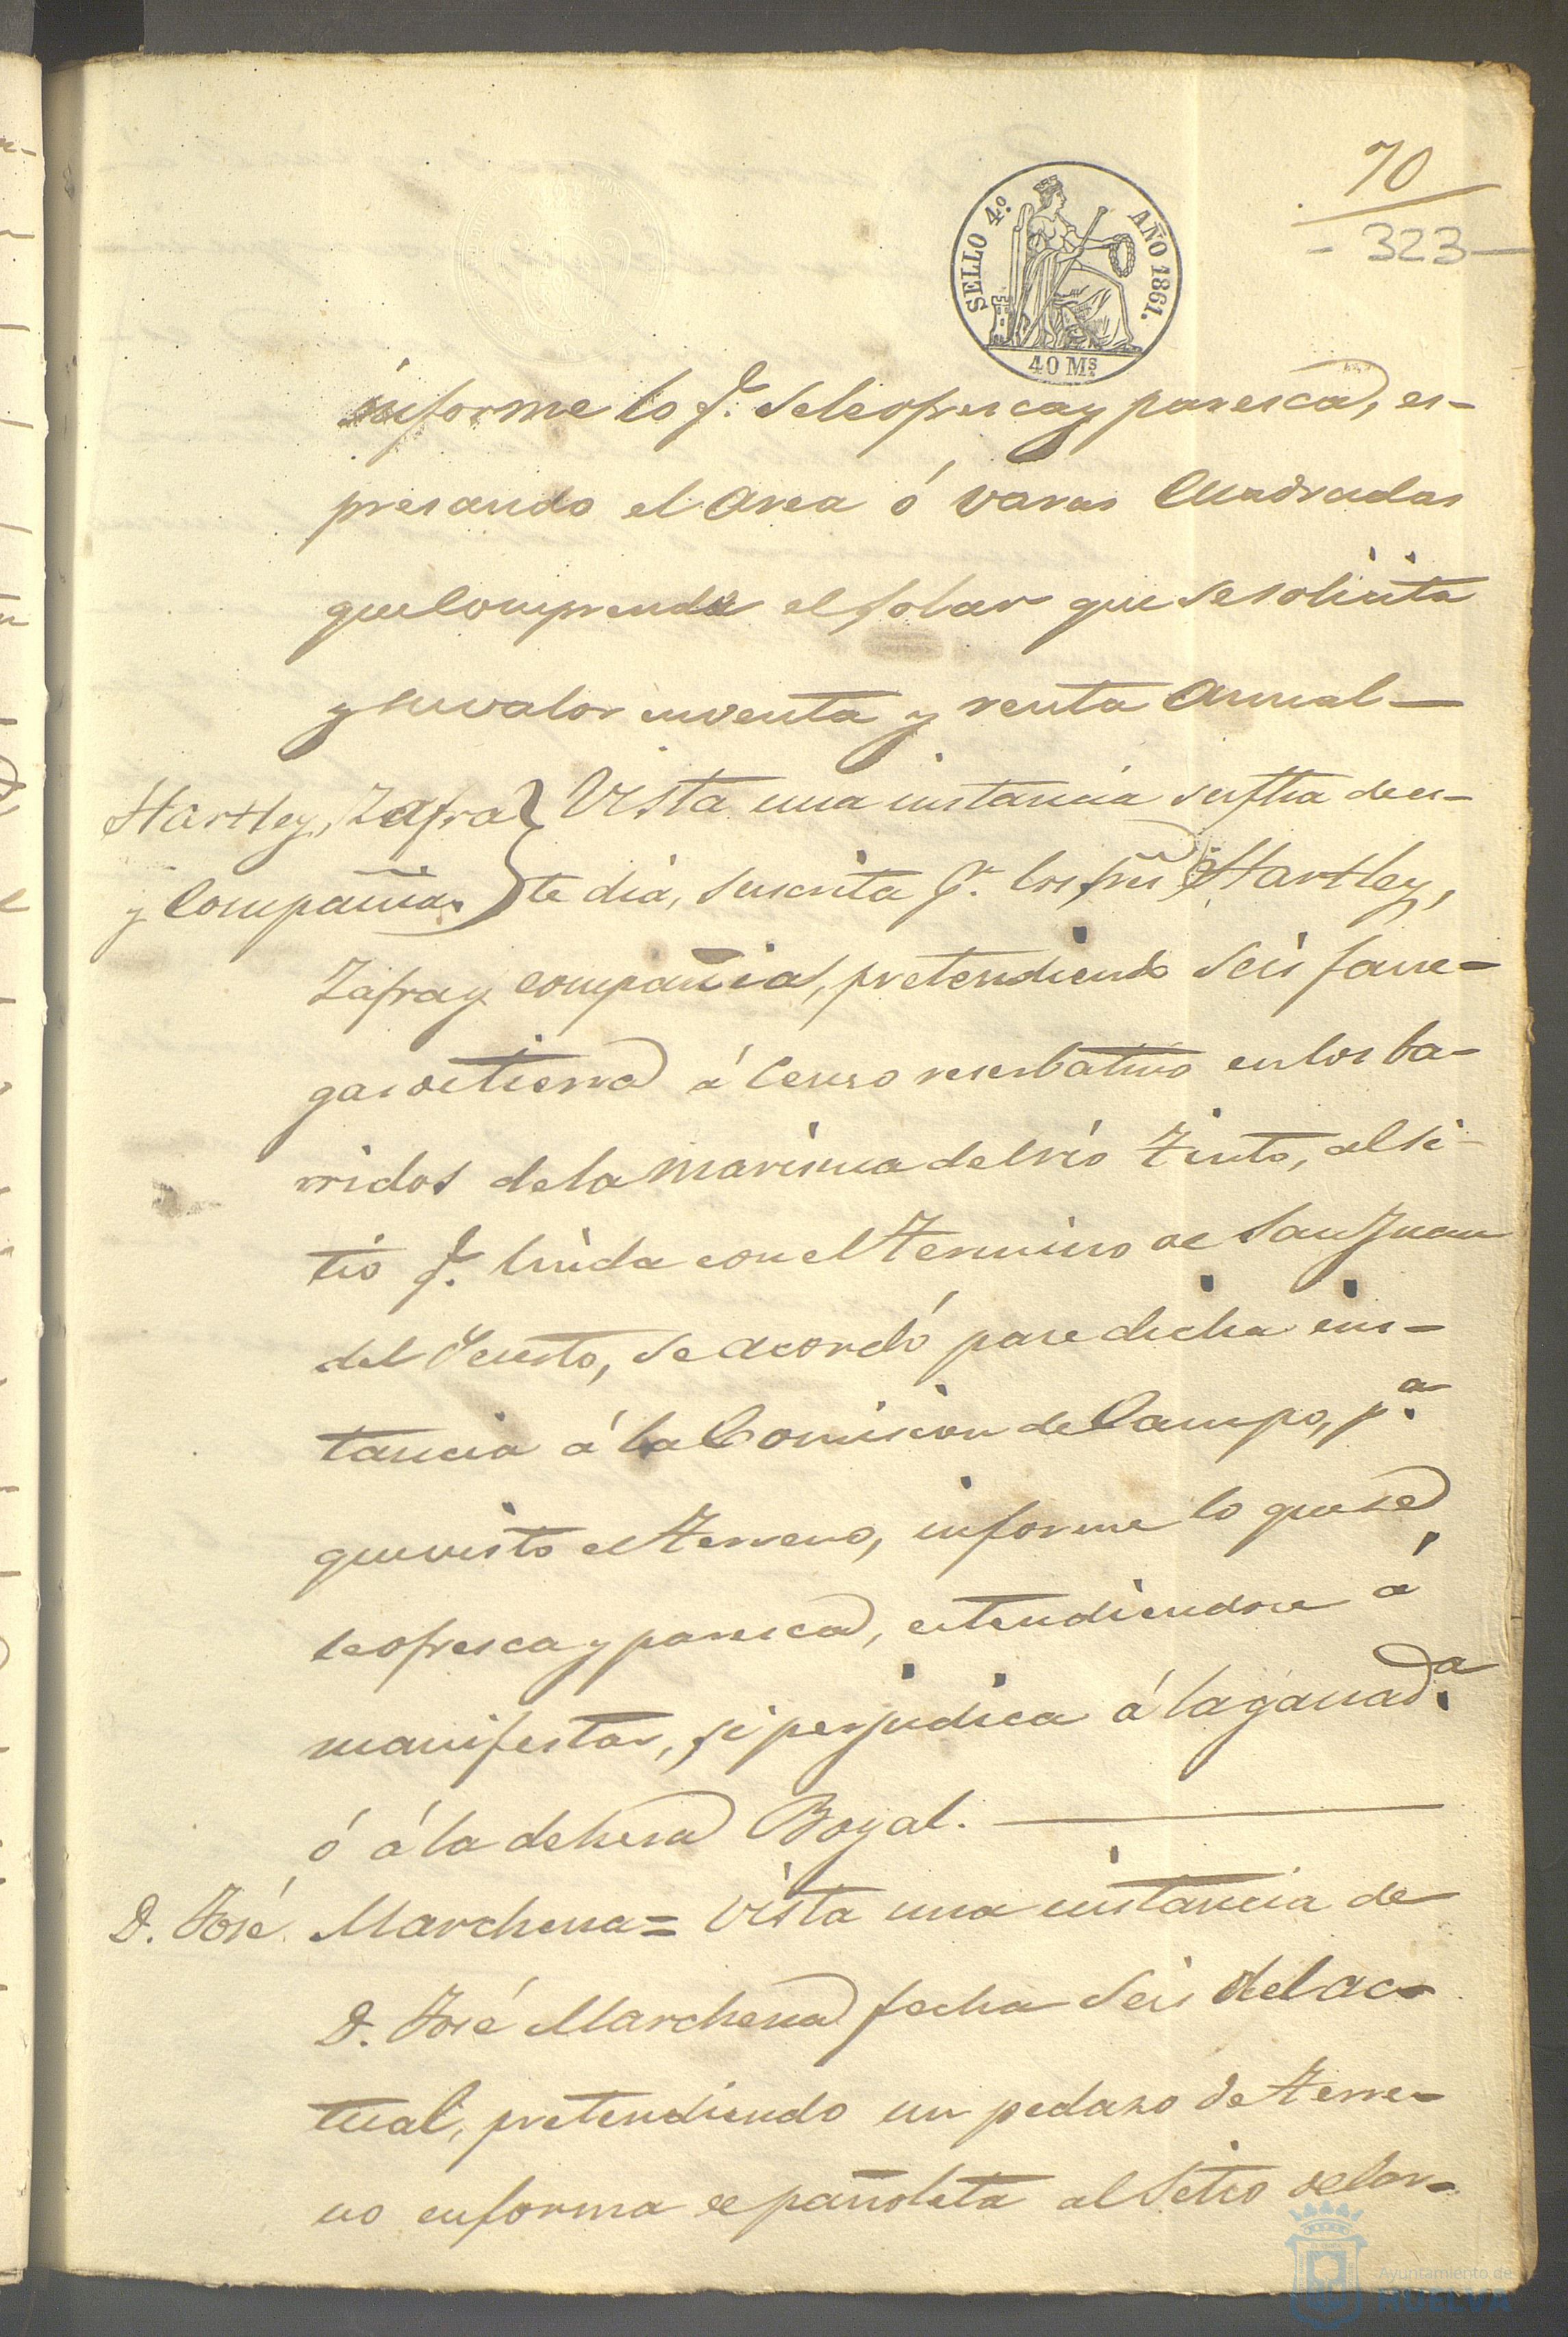 70
- 323 -
SELLO 4º AÑO 1861.
40 Ms.
informe lo q.e se le ofresca y paresca, es-
presando el area ó varas cuadradas
que comprenda el solar que se solicita
y su valor en venta y renta anual —
Hartley, Zafra
y Compañia.
Vista una instancia su fha de es-
te dia, suscrita p.r los Sres Hartley,
Zafra y compañia, pretendiendo seis fane-
gas de tierra á censo reserbativo en los ba-
rridos de la marisma del rio Tinto, al si-
tio q.e linda con el termino de San Juan
del Puerto, se acordó pase dicha ins-
tancia á la Comision de Campo, p.a
que visto el terreno, informe lo que se
le ofresca y paresca, estendiendose á
manifestar, si perjudica á la ganad.a
ó á la dehesa Boyal. —
D. José Marchena = Vista una instancia de
D. José Marchena fecha seis del ac-
tual, pretendiendo un pedazo de terre-
no en forma de pañoleta al sitio de
Ayuntamiento de
HUELVA